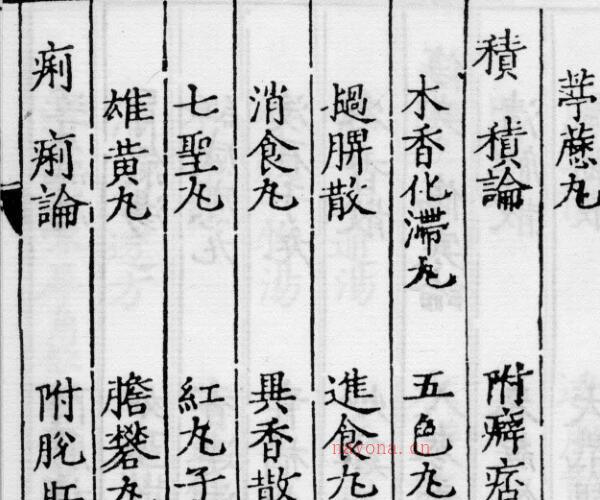 葶藶丸
積 積論 附癖痞
木香化滯丸 五色丸
搨脾散 進食丸
消食丸 異香散
七聖丸 紅丸子
雄黃丸 膽礬丸
痢 痢論 附脫肛
nayona.cn